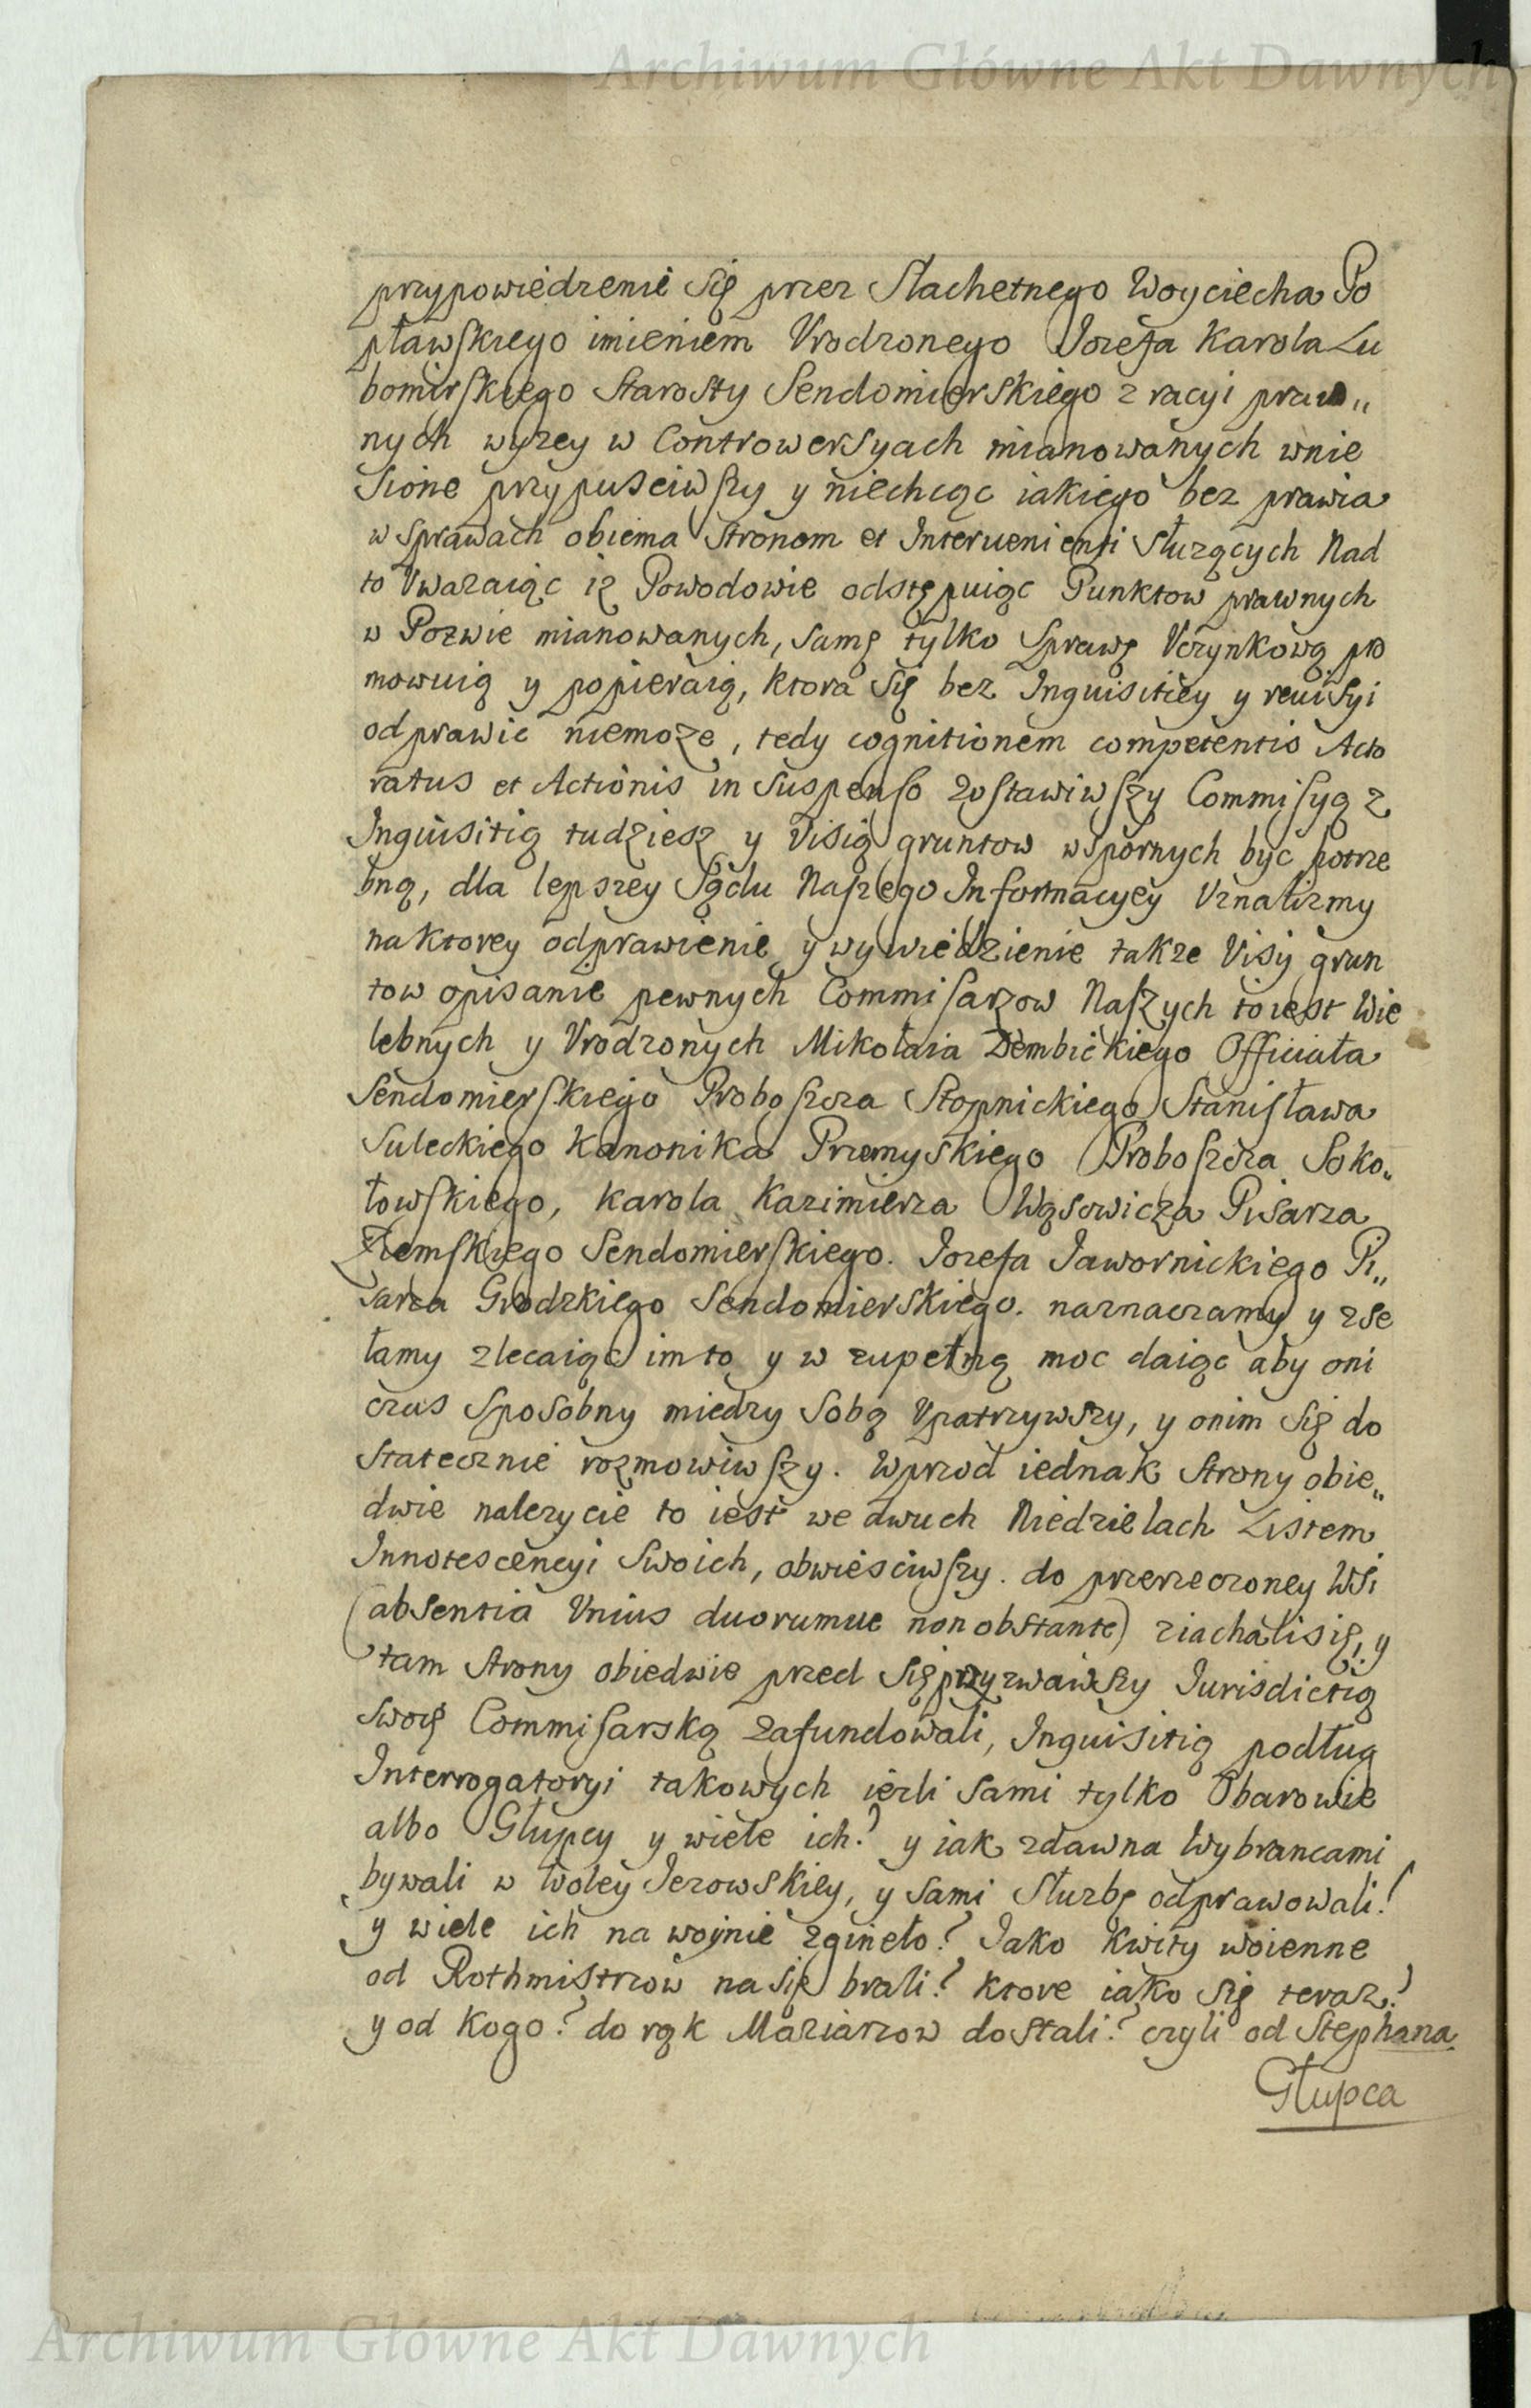 Archiwum Główne Akt Dawnych
przypowiedzenie się przez Slachetnego Woyciecha Po
pławskiego imieniem Vrodzonego Jozefa Karola Lu
bomirskiego Starosty Sendomierskiego z racyi praw„
nych wyzey w Controwersyach mianowanych wnie
sione przypusciwszy y niechcąc iakiego bez prawia
w sprawach obiema stronom et Interuenienti słuzących Nad
to Vwazaiąc iz Powodowie odstępuiąc Punktow prawnych
w Pozwie mianowanych, samę tylko Sprawę Vczynkową pro
mowuią y popieraią, ktora się bez Inquisitiey y reuisyi
odprawic niemoze, tedy cognitionem competentis Acto
ratus et Actionis in suspenso zostawiwszy Commisyą z
Inquisitią tudziesz y Visią gruntow wspornych byc potrze
bną, dla lepszey Sądu Naszego Informacyey Vznalizmy
na ktorey odprawienie y wywiedzienie takze Visij grun
tow opisanie pewnych Commisarzow Naszych to iest Wie
lebnych y Vrodzonych Mikołaia Dembickiego Officiała
Sendomierskiego Proboszcza Stopnickiego Stanisława
Suleckiego Kanonika Przemyskiego Proboszcza Soko„
łowskiego, Karola Kazimierza Wąsowicza Pisarza
Ziemskiego Sendomierskiego. Jozefa Jawornickiego Pi„
sarza Grodzkiego Sendomierskiego. naznaczamy y zse
łamy zlecaiąc im to y w zupełną moc daiąc aby oni
czas sposobny miedzy sobą Vpatrzywszy, y onim się do
statecznie rozmowiwszy. Wprzod iednak strony obie„
dwie nalezycie to iest we dwuch Niedzielach Listem
Innotescencyi swoich, obwiesciwszy. do przerzeczoney Wsi
(absentia Vnius duorumue non obstante) ziachali się, y
tam strony obiedwie przed się przyzwawszy Jurisdictią
swoię Commisarską zafundowali, Inquisitią podług
Interrogatoryi takowych iezli sami tylko Obarowie
albo Głupcy y wiele ich? y iak zdawna Wybrancami
bywali w Woley Jezowskiey, y sami słuzbę odprawowali?
y wiele ich na woynie zgineło? Jako kwity woienne
od Rothmistrzow na się brali? ktore iako się teraz?
y od kogo? do rąk Maziarzow dostali? czyli od Stephana
Głupca
Archiwum Główne Akt Dawnych